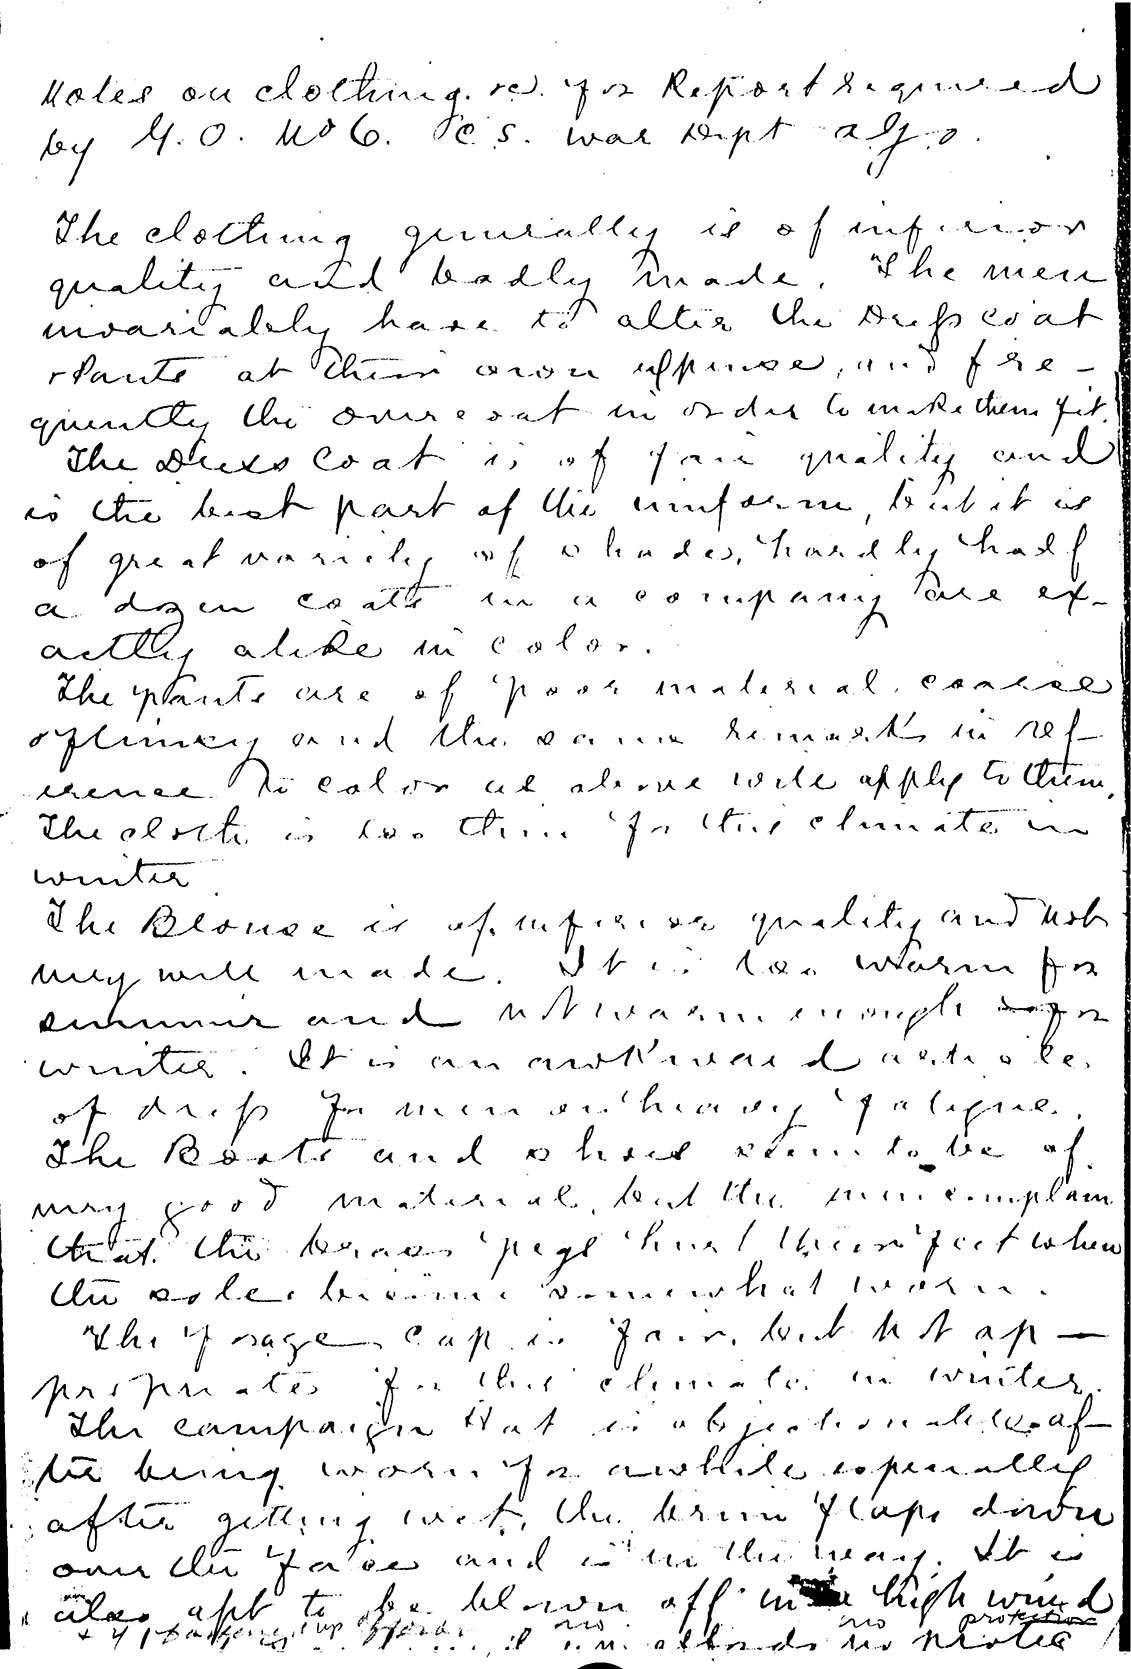 Notes on clothing. &c. for Report required
by G. O. No 6. c. s. War Dept a. g. o.
The clothing generally is of inferior
quality and badly made. The men
invariably have to alter the Dress coat
& Pants at their own expense, and fre-
quently the overcoat in order to make them fit.
The Dress Coat is of fair quality and
is the best part of the uniform, but it is
of great variety of shades, hardly half
a dozen coats in a company are ex-
actly alike in color.
The pants are of poor material, coarse
& flimsy and the same remarks in ref-
erence to color as above will apply to them.
The cloth is too thin for this climate in
winter
The Blouse is of inferior quality and not
very well made. It is too warm for
summer and not warm enough for
winter. It is an awkward article
of dress for men on heavy fatigue.
The Boots and shoes seem to be of
very good material, but the men complain
that the brass pegs hurt their feet when
the soles become somewhat worn.
The forage cap is fair, but not ap-
propriate for this climate in winter.
The campaign Hat is objectionable af-
ter being worn for awhile especially
after getting wet, the brim flaps down
over the face and is in the way. It is
also apt to be blown off in high wind
no no protection
affords no protec